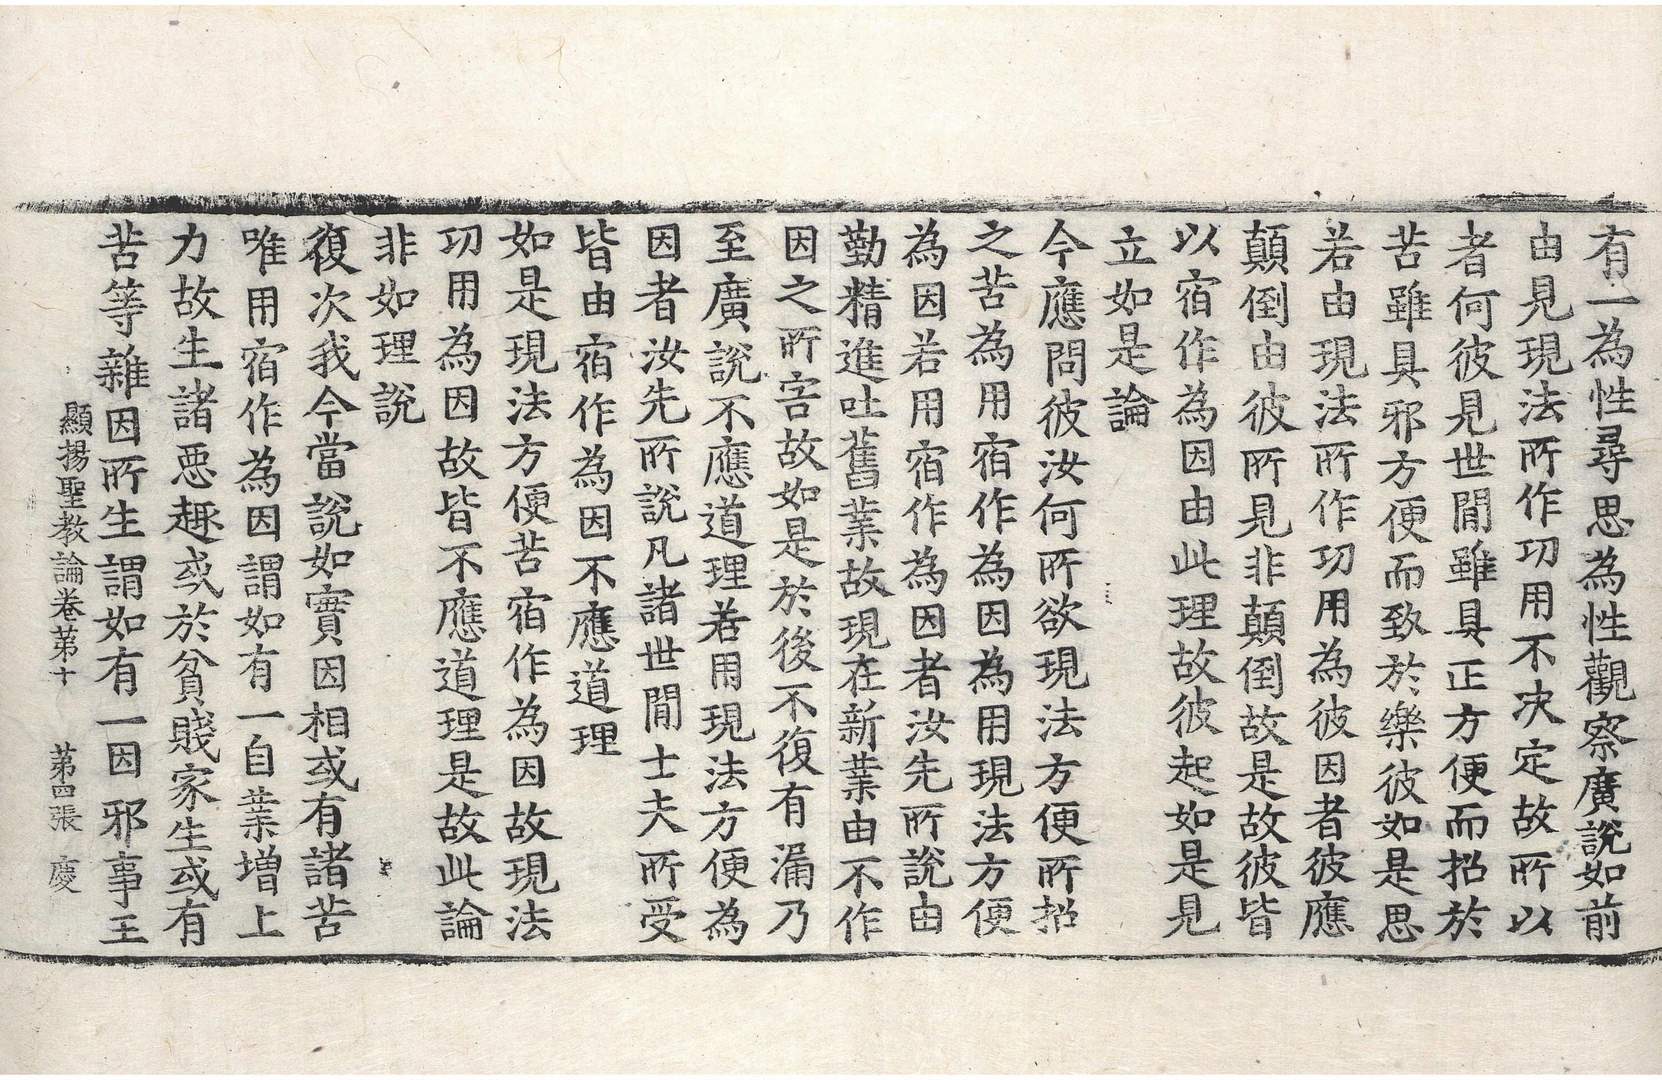 有一為性尋思為性觀察廣說如前
由見現法所作功用不决定故所以
者何彼見世間雖具正方便而招於
苦雖具邪方便而致於樂彼如是思
若由現法所作功用為彼因者彼應
顛倒由彼所見非顛倒故是故彼皆
以宿作為因由此理故彼起如是見
立如是論
今應問彼汝何所欲現法方便所招
之苦為用宿作為因為用現法方便
為因若用宿作為因者汝先所說由
勤精進吐舊業故現在新業由不作
因之所害故如是於後不復有漏乃
至廣說不應道理若用現法方便為
因者汝先所說凡諸世間士夫所受
皆由宿作為因不應道理
如是現法方便苦宿作為因故現法
功用為因故皆不應道理是故此論
非如理說
復次我今當說如實因相或有諸苦
唯用宿作為因謂如有一自業增上
力故生諸惡趣或於貧賤家生或有
苦等雜因所生謂如有一因邪事王
顯揚聖教論卷第十 第四張 慶